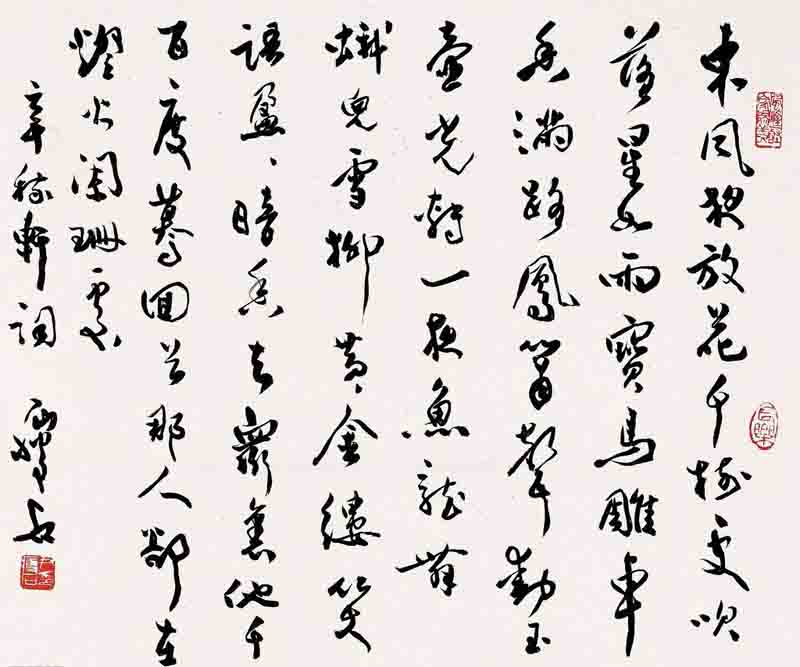 東風夜放花千樹更吹
落星如雨寶馬雕車
香滿路鳳簫聲動玉
壺光轉一夜魚龍舞
蛾兒雪柳黃金縷笑
語盈、暗香去他千
百度驀回首那人卻在
燈火闌珊處
辛稼軒詞